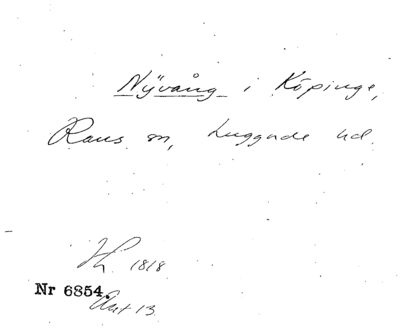 Nÿvång i Köpinge,
Raus sn, Luggude hd.
1818
Nr 6854.
Akt 13